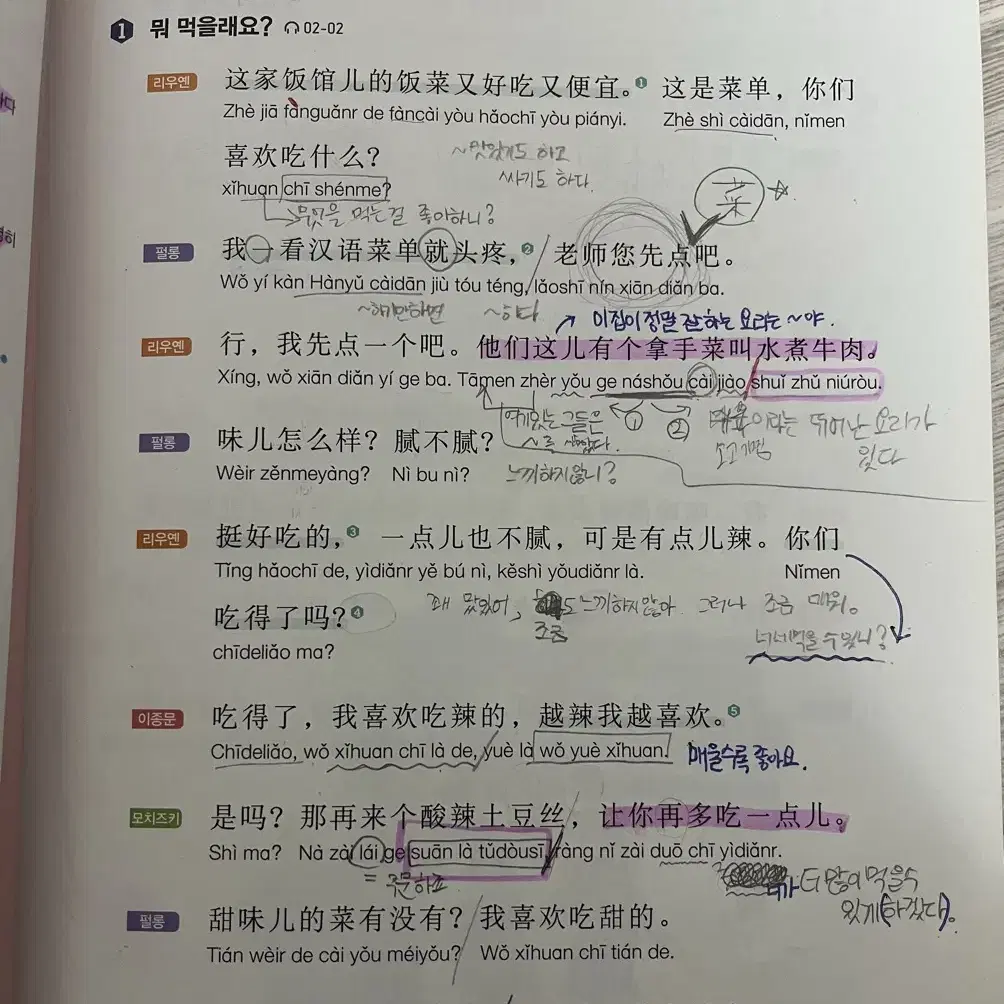 1 뭐 먹을래요? 02-02
리우옌 这家饭馆儿的饭菜又好吃又便宜。❶ 这是菜单，你们
Zhè jiā fànguǎnr de fàncài yòu hǎochī yòu piányi. Zhè shì càidān, nǐmen
喜欢吃什么？ ~맛있기도 하고
xǐhuan chī shénme? 싸기도 하다.
菜
무엇을 먹는걸 좋아하니?
펄롱 我一看汉语菜单就头疼，❷ 老师您先点吧。
Wǒ yí kàn Hànyǔ càidān jiù tóu téng, lǎoshī nín xiān diǎn ba.
~하기만하면 ~하다
이집이 정말 잘하는 요리는 ~야.
리우옌 行，我先点一个吧。他们这儿有个拿手菜叫水煮牛肉。
Xíng, wǒ xiān diǎn yí ge ba. Tāmen zhèr yǒu ge náshǒu cài jiào shuǐ zhǔ niúròu.
여기있는 그들은 ① ② 이라는 뛰어난 요리가
있다
펄롱 味儿怎么样？ 腻不腻？
Wèir zěnmeyàng? Nì bu nì? 느끼하지않니?
리우옌 挺好吃的，❸ 一点儿也不腻，可是有点儿辣。你们
Tǐng hǎochī de, yìdiǎnr yě bú nì, kěshì yǒudiǎnr là. Nǐmen
吃得了吗？❹ 꽤 맛있어, 도 느끼하지않아. 그러나 조금 매워.
조금
chīdeliǎo ma? 너네먹을수있니?
이종문 吃得了，我喜欢吃辣的，越辣我越喜欢。❺
Chīdeliǎo, wǒ xǐhuan chī là de, yuè là wǒ yuè xǐhuan. 매울수록 좋아요.
모치즈키 是吗？ 那再来个酸辣土豆丝，让你再多吃一点儿。
Shì ma? Nà zài lái ge suān là tǔdòusī, ràng nǐ zài duō chī yìdiǎnr.
= 주문하죠
네가 더 많이 먹을수
있게(하겠다).
펄롱 甜味儿的菜有没有？ 我喜欢吃甜的。
Tián wèir de cài yǒu méiyǒu? Wǒ xǐhuan chī tián de.